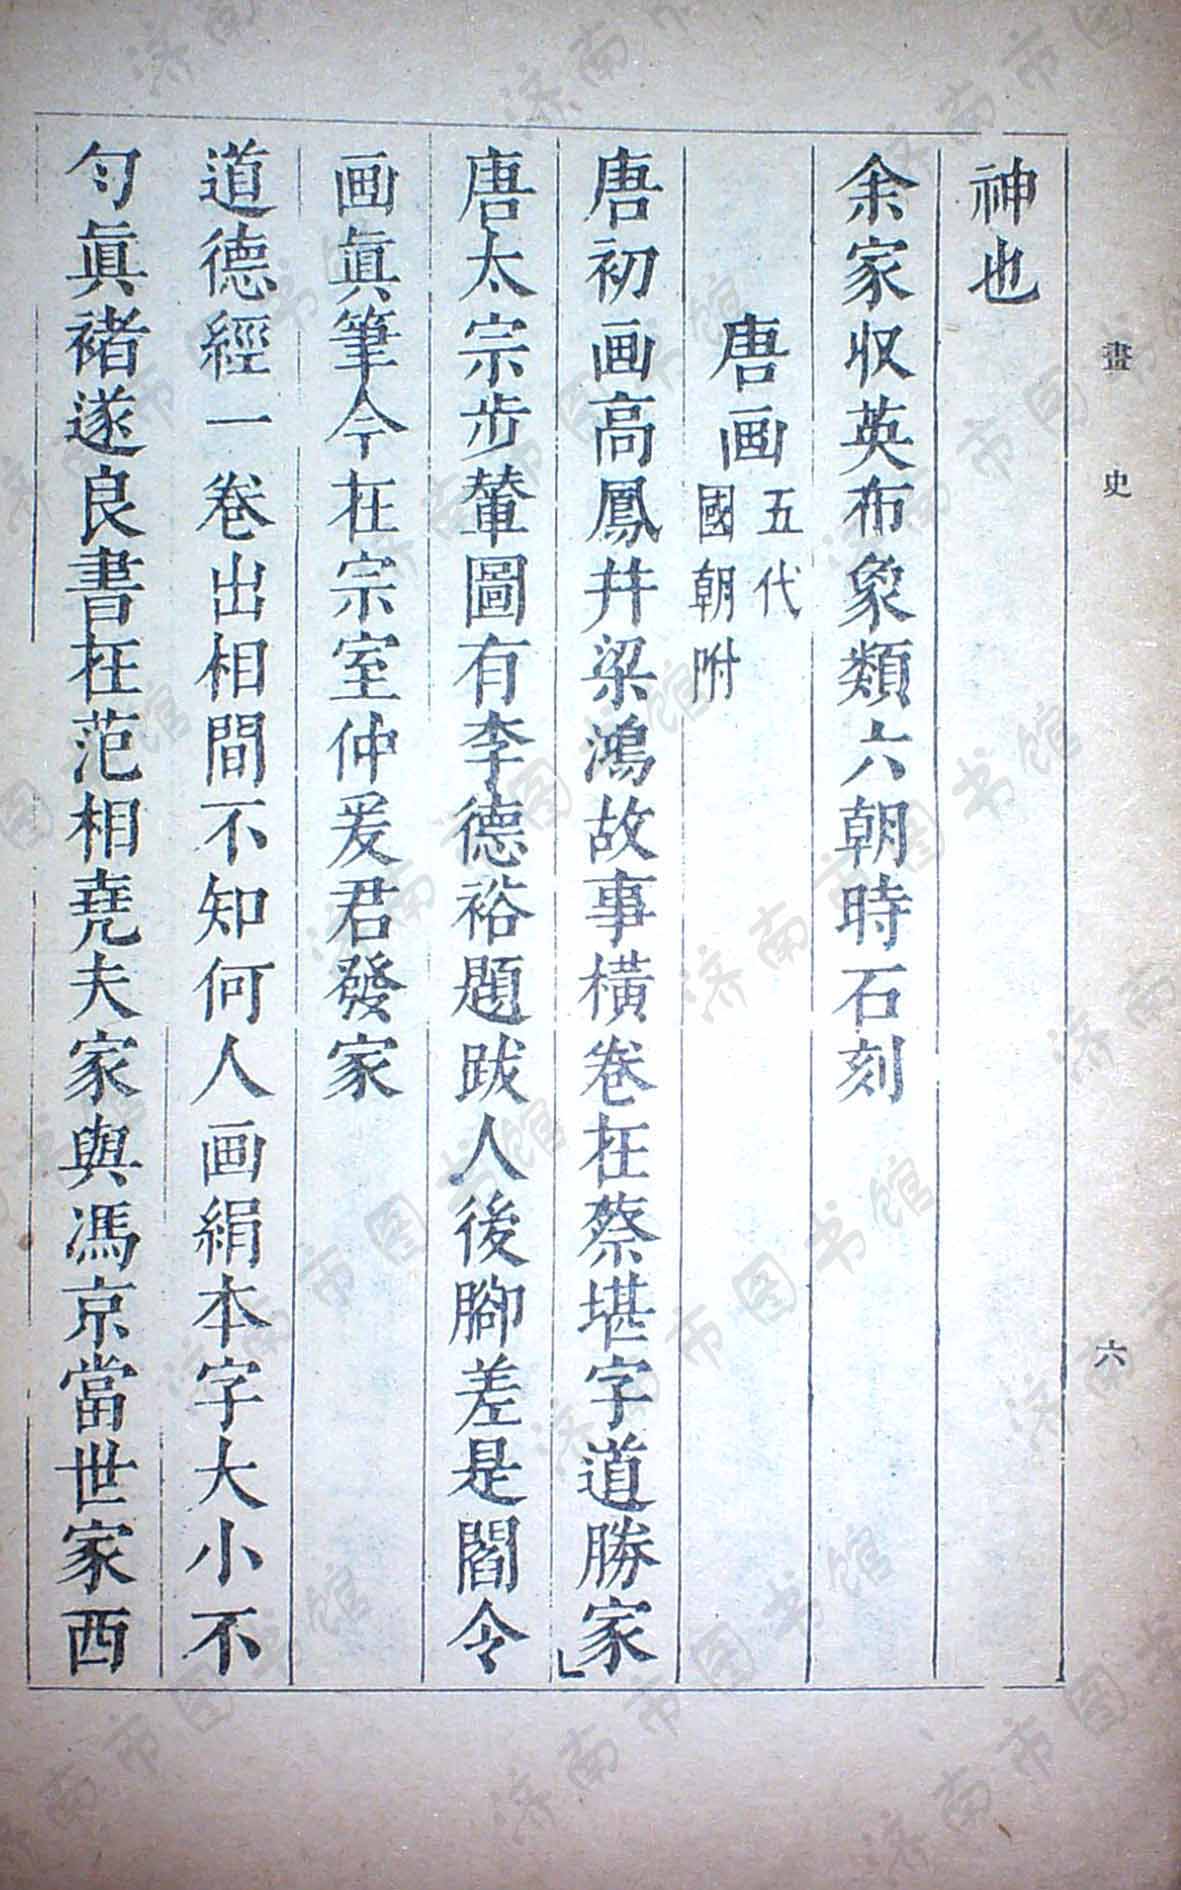 畫史
六
神也
余家収英布象類六朝時石刻
唐画
五代
國朝附
唐初画高鳳井梁鴻故事橫卷在蔡堪字道勝家
唐太宗步輦圖有李德裕題跋人後腳差是閻令
画眞筆今在宗室仲爰君發家
道德經一卷出相間不知何人画絹本字大小不
匀眞褚遂良書在范相堯夫家與馮京當世家西
济南市图书馆